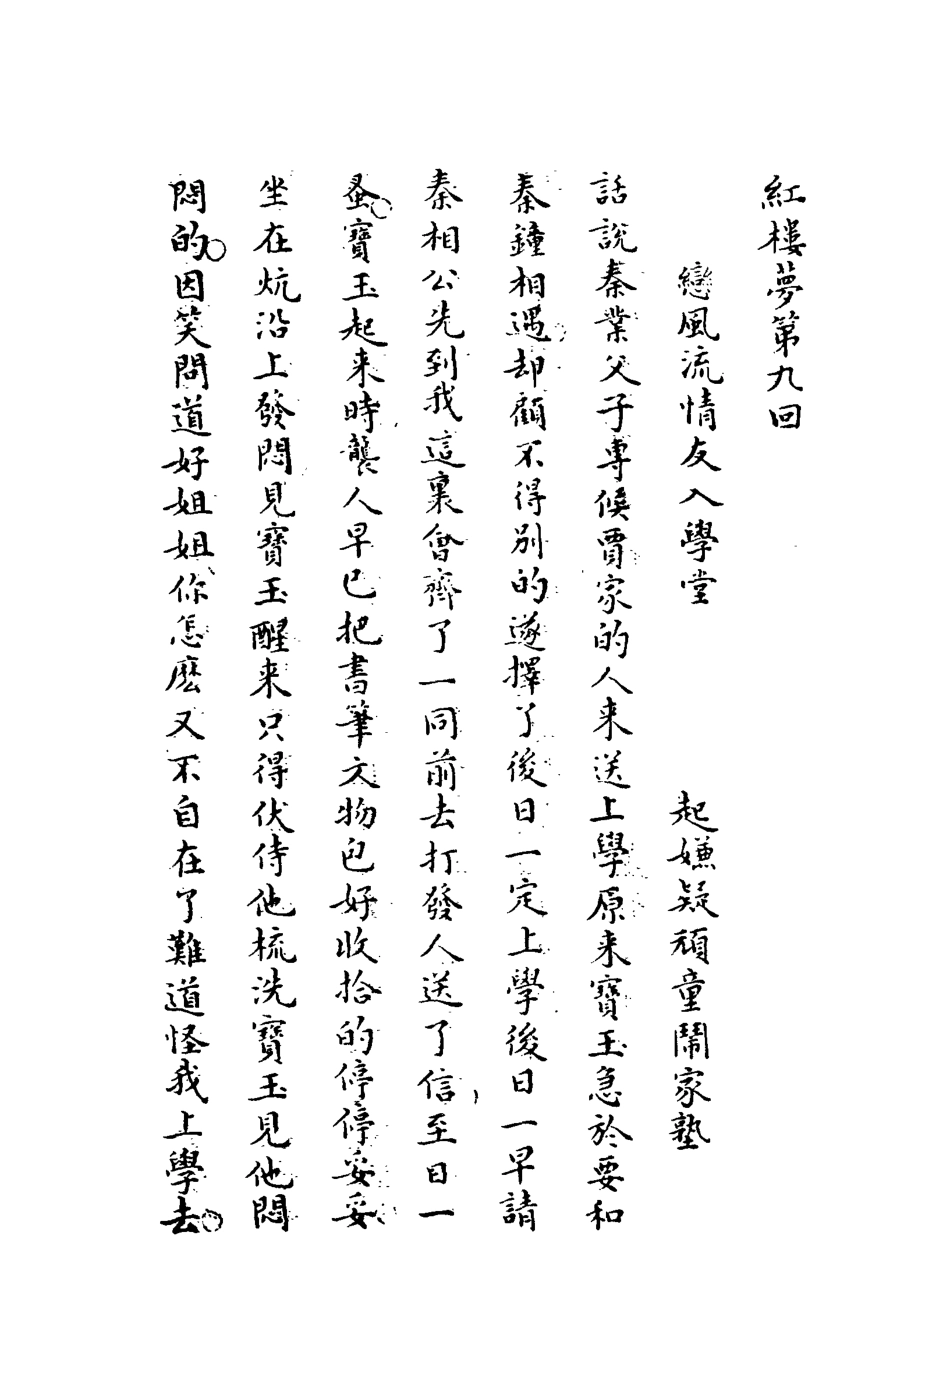 紅樓夢第九回
戀風流情友入學堂
起嫌疑頑童鬧家塾
話說秦業父子專候賈家的人来送上學原来寶玉急於要和
秦鐘相遇却顧不得别的遂擇了後日一定上學後日一早請
秦相公先到我這裏會齊了一同前去打發人送了信至日一
蚤寶玉起来時襲人早已把書筆文物包好收拾的停停妥妥
坐在炕沿上發悶見寶玉醒来只得伏侍他梳洗寶玉見他悶
悶的因笑問道好姐姐你怎麽又不自在了難道怪我上學去